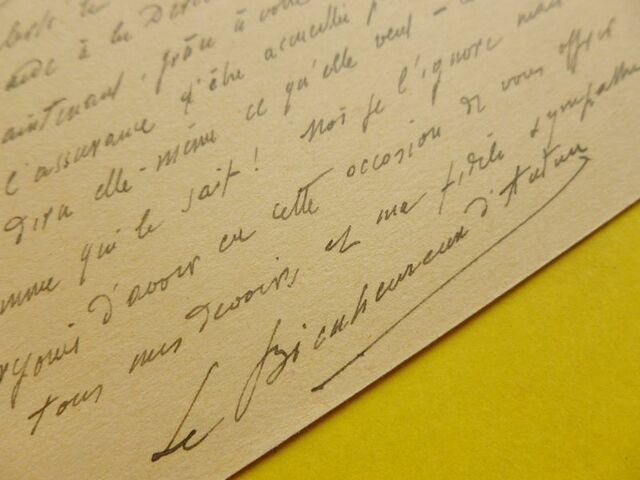 aide à la
maintenant, grâce à votre
l'assurance d'être accueillie
dira elle-même ce qu'elle veut -
qui le sait! Moi je l'ignore mais
d'avoir eu cette occasion de vous offrir
tous mes devoirs et ma fidèle sympathie
Le Bienheureux d'Autun